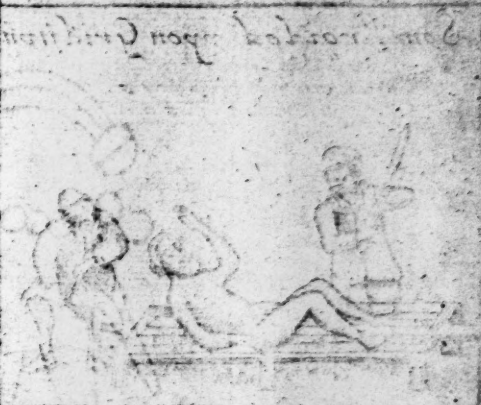 Som broiled upon Gridirons